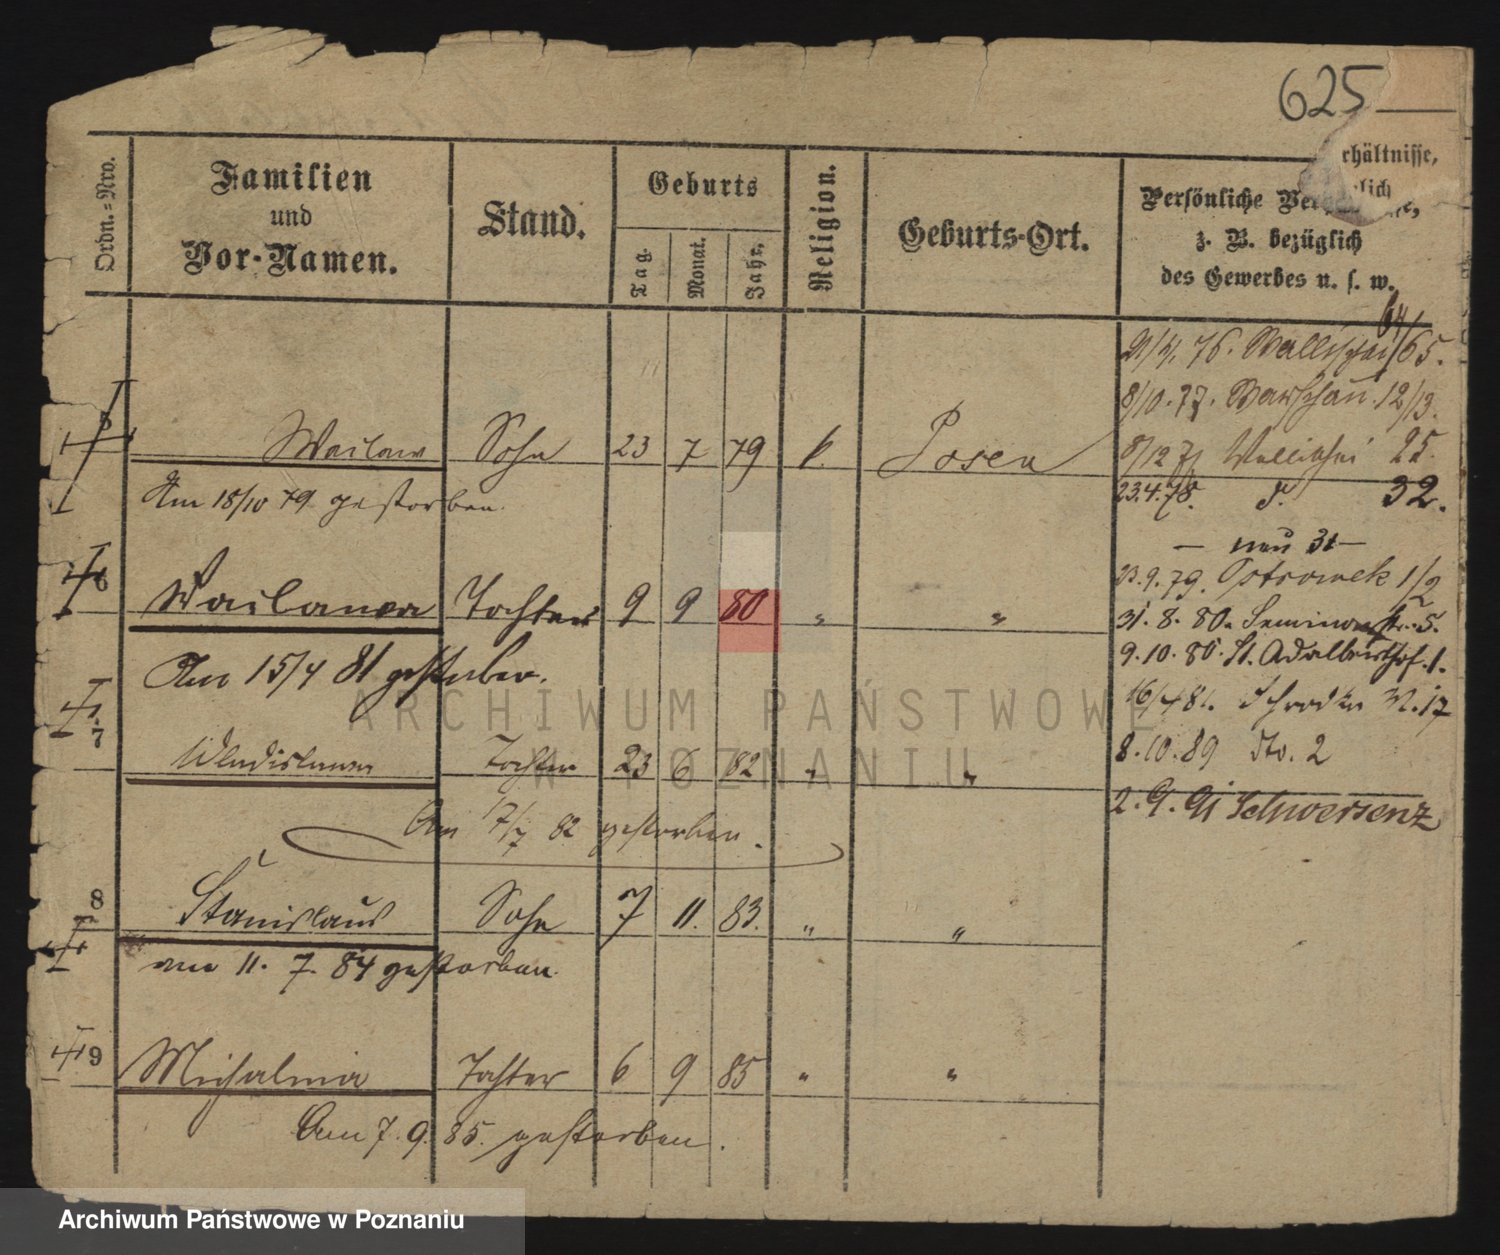 625
Ordn.=Nro.
Familien
und
Vor-Namen.
Stand.
Geburts
Tag.
Monat.
Jahr.
Religion.
Geburts-Ort.
rhältnisse,
lich
Persönliche
z. B. bezüglich
des Gewerbes u. s. w.
64/65.
21/4. 76. Wallischei
8/10. 77. Warschau. 12/13.
5 Wailaw Sohn 23 7 79 k. Posen
8/12 77 Wallischei 25.
Am 18/10 79 gestorben.
23.4.78. d. 32.
— neu 31 —
23.9.79. Ostrowek 1/2
6 Wailawa Tochter 9 9 80 " "
31. 8. 80. Seminarstr. 5.
Am 15/4 81 gestorben.
9.10.80. St. Adalberthof. 1.
16/4 81. Schrodka M. 17
7 Wladislawa Tochter 23 6 82 " "
8.10.89 dto. 2
2. 9. 91 Schwersenz
Am 17/7 82 gestorben.
8 Stanislaus Sohn 7 11. 83. " "
am 11. 7. 84 gestorben.
9 Michalina Tochter 6 9 85 " "
Am 7. 9. 85. gestorben.
ARCHIWUM PAŃSTWOWE
W POZNANIU
Archiwum Państwowe w Poznaniu